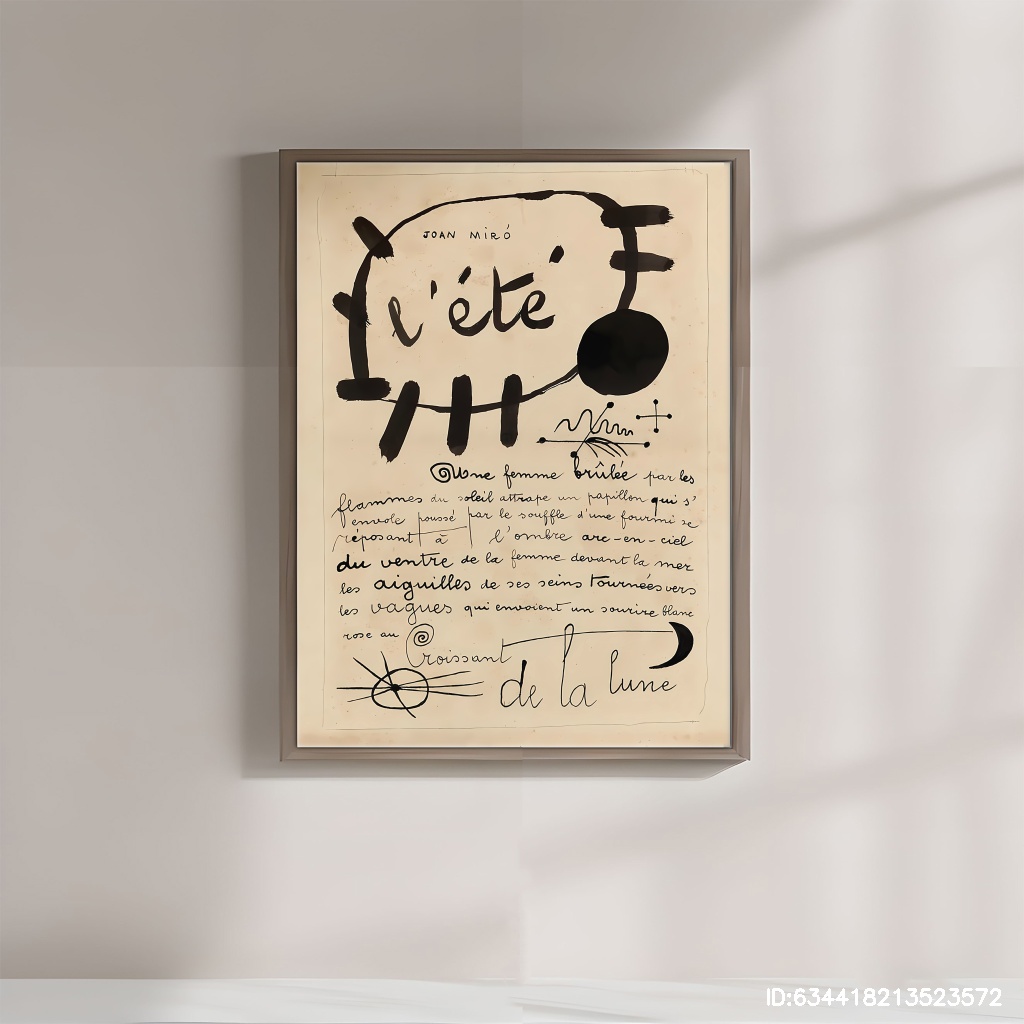 JOAN MIRÓ
l'été
Une femme brûlée par les
flammes du soleil attrape un papillon qui s'
envole poussé par le souffle d'une fourmi se
réposant à l'ombre arc-en-ciel
du ventre de la femme devant la mer
les aiguilles de ses seins tournées vers
les vagues qui envoient un sourire blanc
rose au
Croissant
de la lune
ID:634418213523572